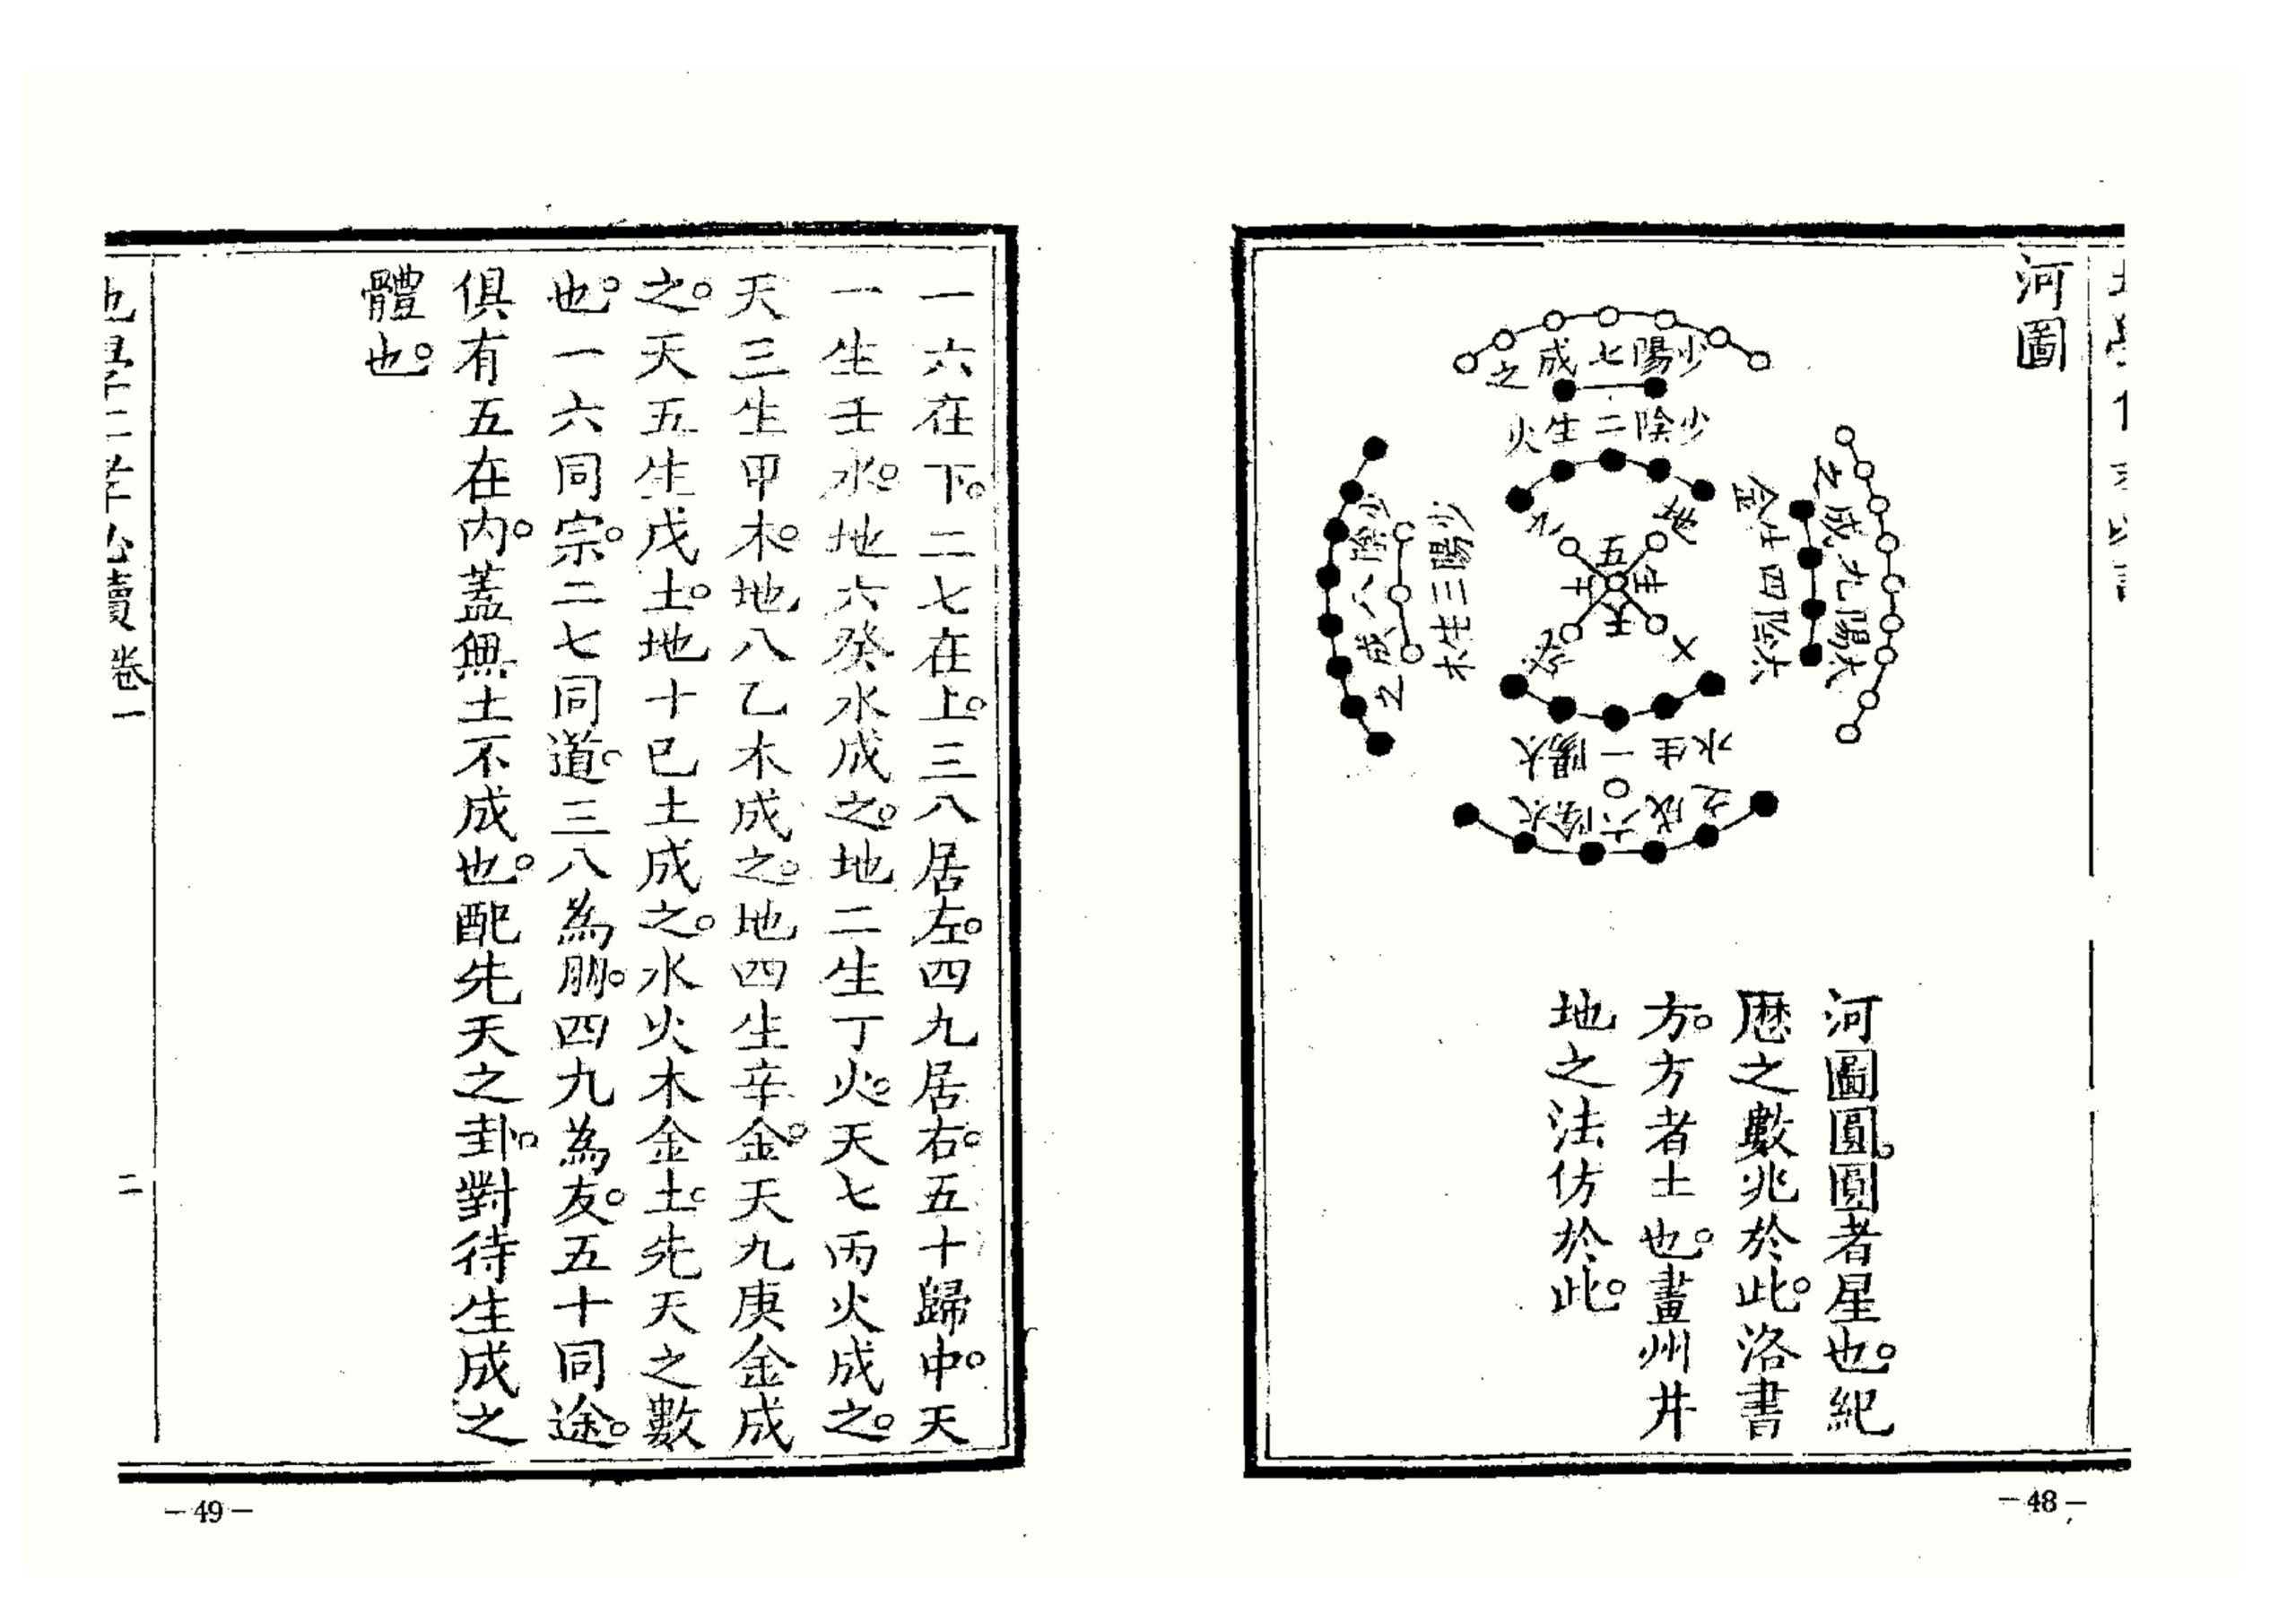 河圖
少陽七成之
少陰二生火
太陰四生金
太陽九成之
少陽三生木
少陰八成之
五
太陽一生水
太陰六成之
河圖圓。圓者星也。紀
厯之數兆於此。洛書
方。方者土也。畫州井
地之法仿於此。
—48—
一六在下。二七在上。三八居左。四九居右。五十歸中。天
一生壬水。地六癸水成之。地二生丁火。天七丙火成之。
天三生甲木。地八乙木成之。地四生辛金。天九庚金成
之。天五生戊土。地十己土成之。水火木金土。先天之數
也。一六同宗。二七同道。三八為朋。四九為友。五十同途。
俱有五在內。蓋無土不成也。配先天之卦。對待生成之
體也。
卷一
二
—49—